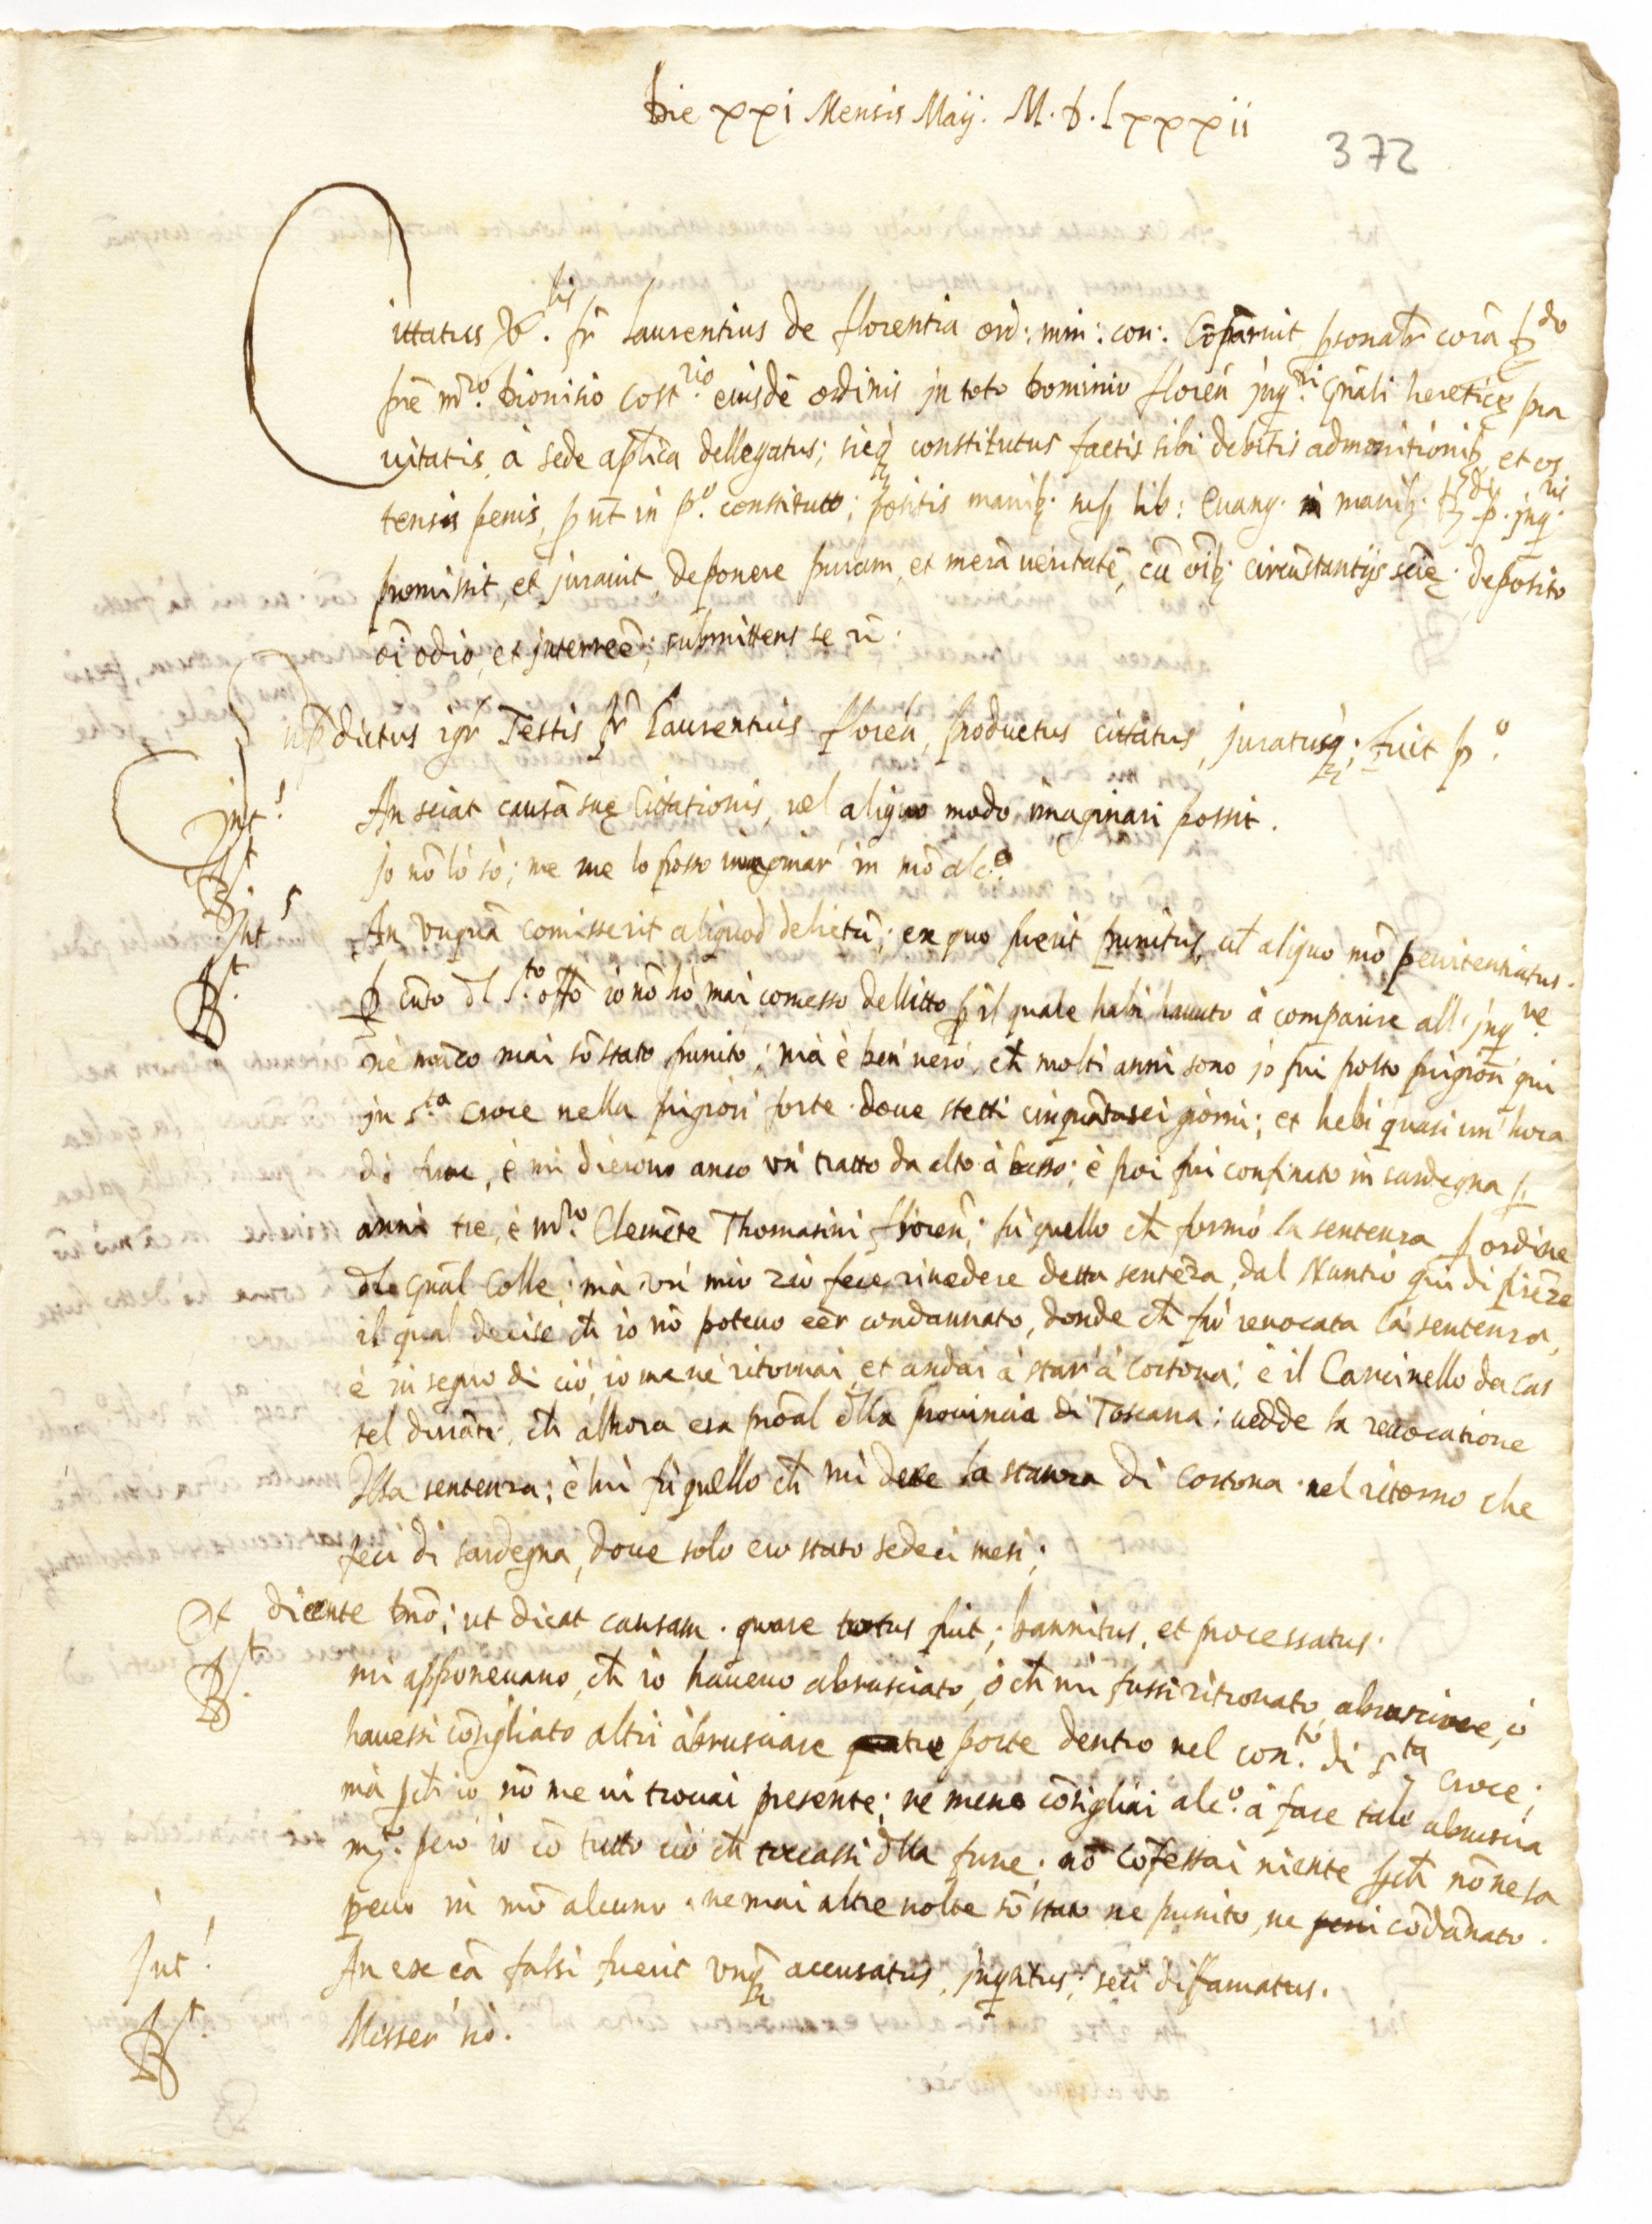 Die xxi Mensis Maij. M. D. Lxxxii
372
Cittatus R.dus fr Laurentius de florentia ord: min: con: Cōparuit psonalr corā Rdo
pre mro. Dionisio Cost.rio eiusdē ordinis in toto Dominio florēn jnq.ri Gnāli heretice pra
vitatis à sede aplica dellegatus; sicq constitutus factis sibi debitis admonitionib, et os
tensis penis, put in po. constituto; positis manib. sup lib: Euang. in manib. Rdi p. jnqris
promissit, et jurauit, deponere puram, et merā ueritatē, cū oīb. circūstantijs scie. deposito
oī odio, et jnterreē; submittens se
supdictus igr Testis fr Laurentius florēn, productus cittatus, juratusq; fuit po.
jnt! An sciat causā sue Cittationis, uel aliquo modo imaginari possit.
Rt Jo nō lo sò; ne me lo posso imaginar in mō alco.
Int An vnquā comisserit aliquod delictū; ex quo fuerit punitus, ut aliquo mō penitentiatus.
Rt. P cuto dl S.to offo io nō hò mai comesso dellitto p il quale habi hauuto à comparire all' jnqne
ne māco mai sō stato punito; mà è ben' uero, ch molti anni sono jo fui posto prigion' qui
jn S.ta Croce nella prigion' forte. doue stetti cinquātasei giorni; et hebi quasi un' hora
di fune, è mi dierono anco vn' tratto da alto à basso; è poi fui confinato in sardegna p
anni tre, è mro. Clemēte Thomasini fioren; fù quello ch formò la sentenza p ordine
dl Gnāl Colle; mà vn' mio zio fece riuedere detta sentēza, dal Nuntio qui di firēze
il qual decise ch io nō poteuo eer condannato, donde ch fù reuocata la sentenza,
è in segno di ciò, io me ne ritornai et andai à star' à Cortona; è il Cancinello da Cas
tel durāte, ch alhora era proāl dlla prouincia di Toscana: uedde la reuocatione
dlla sentenza; è lui fù quello ch mi dete la stanza di Cortona. nel ritorno che
feci di sardegna, doue solo ero stato sedeci mesi;
Et dicente tmō; ut dicat causam. quare tortus fuit; bannitus, et processatus.
Rt. mi apponeuano, ch io haueuo abrusciato, ò ch mi fussi ritrouato abrusciare, ò
hauessi cōsigliato altri àbrusciare porte dentro nel con.to di S.ta Croce;
mà pch io nō me ui trouai presente; ne meno cōsigliai alco. à fare tale abruscia
mto. però io cō tutto ciò ch toccassi dlla fune, nō cōfessai niente pch nō ne sa
peuo in mō alcuno. ne mai altre uolte sō stato ne punito, ne cōdānato.
Int! An ex cā falsi fuerit vnq accusatus, jnqtus, seu diffamatus.
Rt. Misser nò.